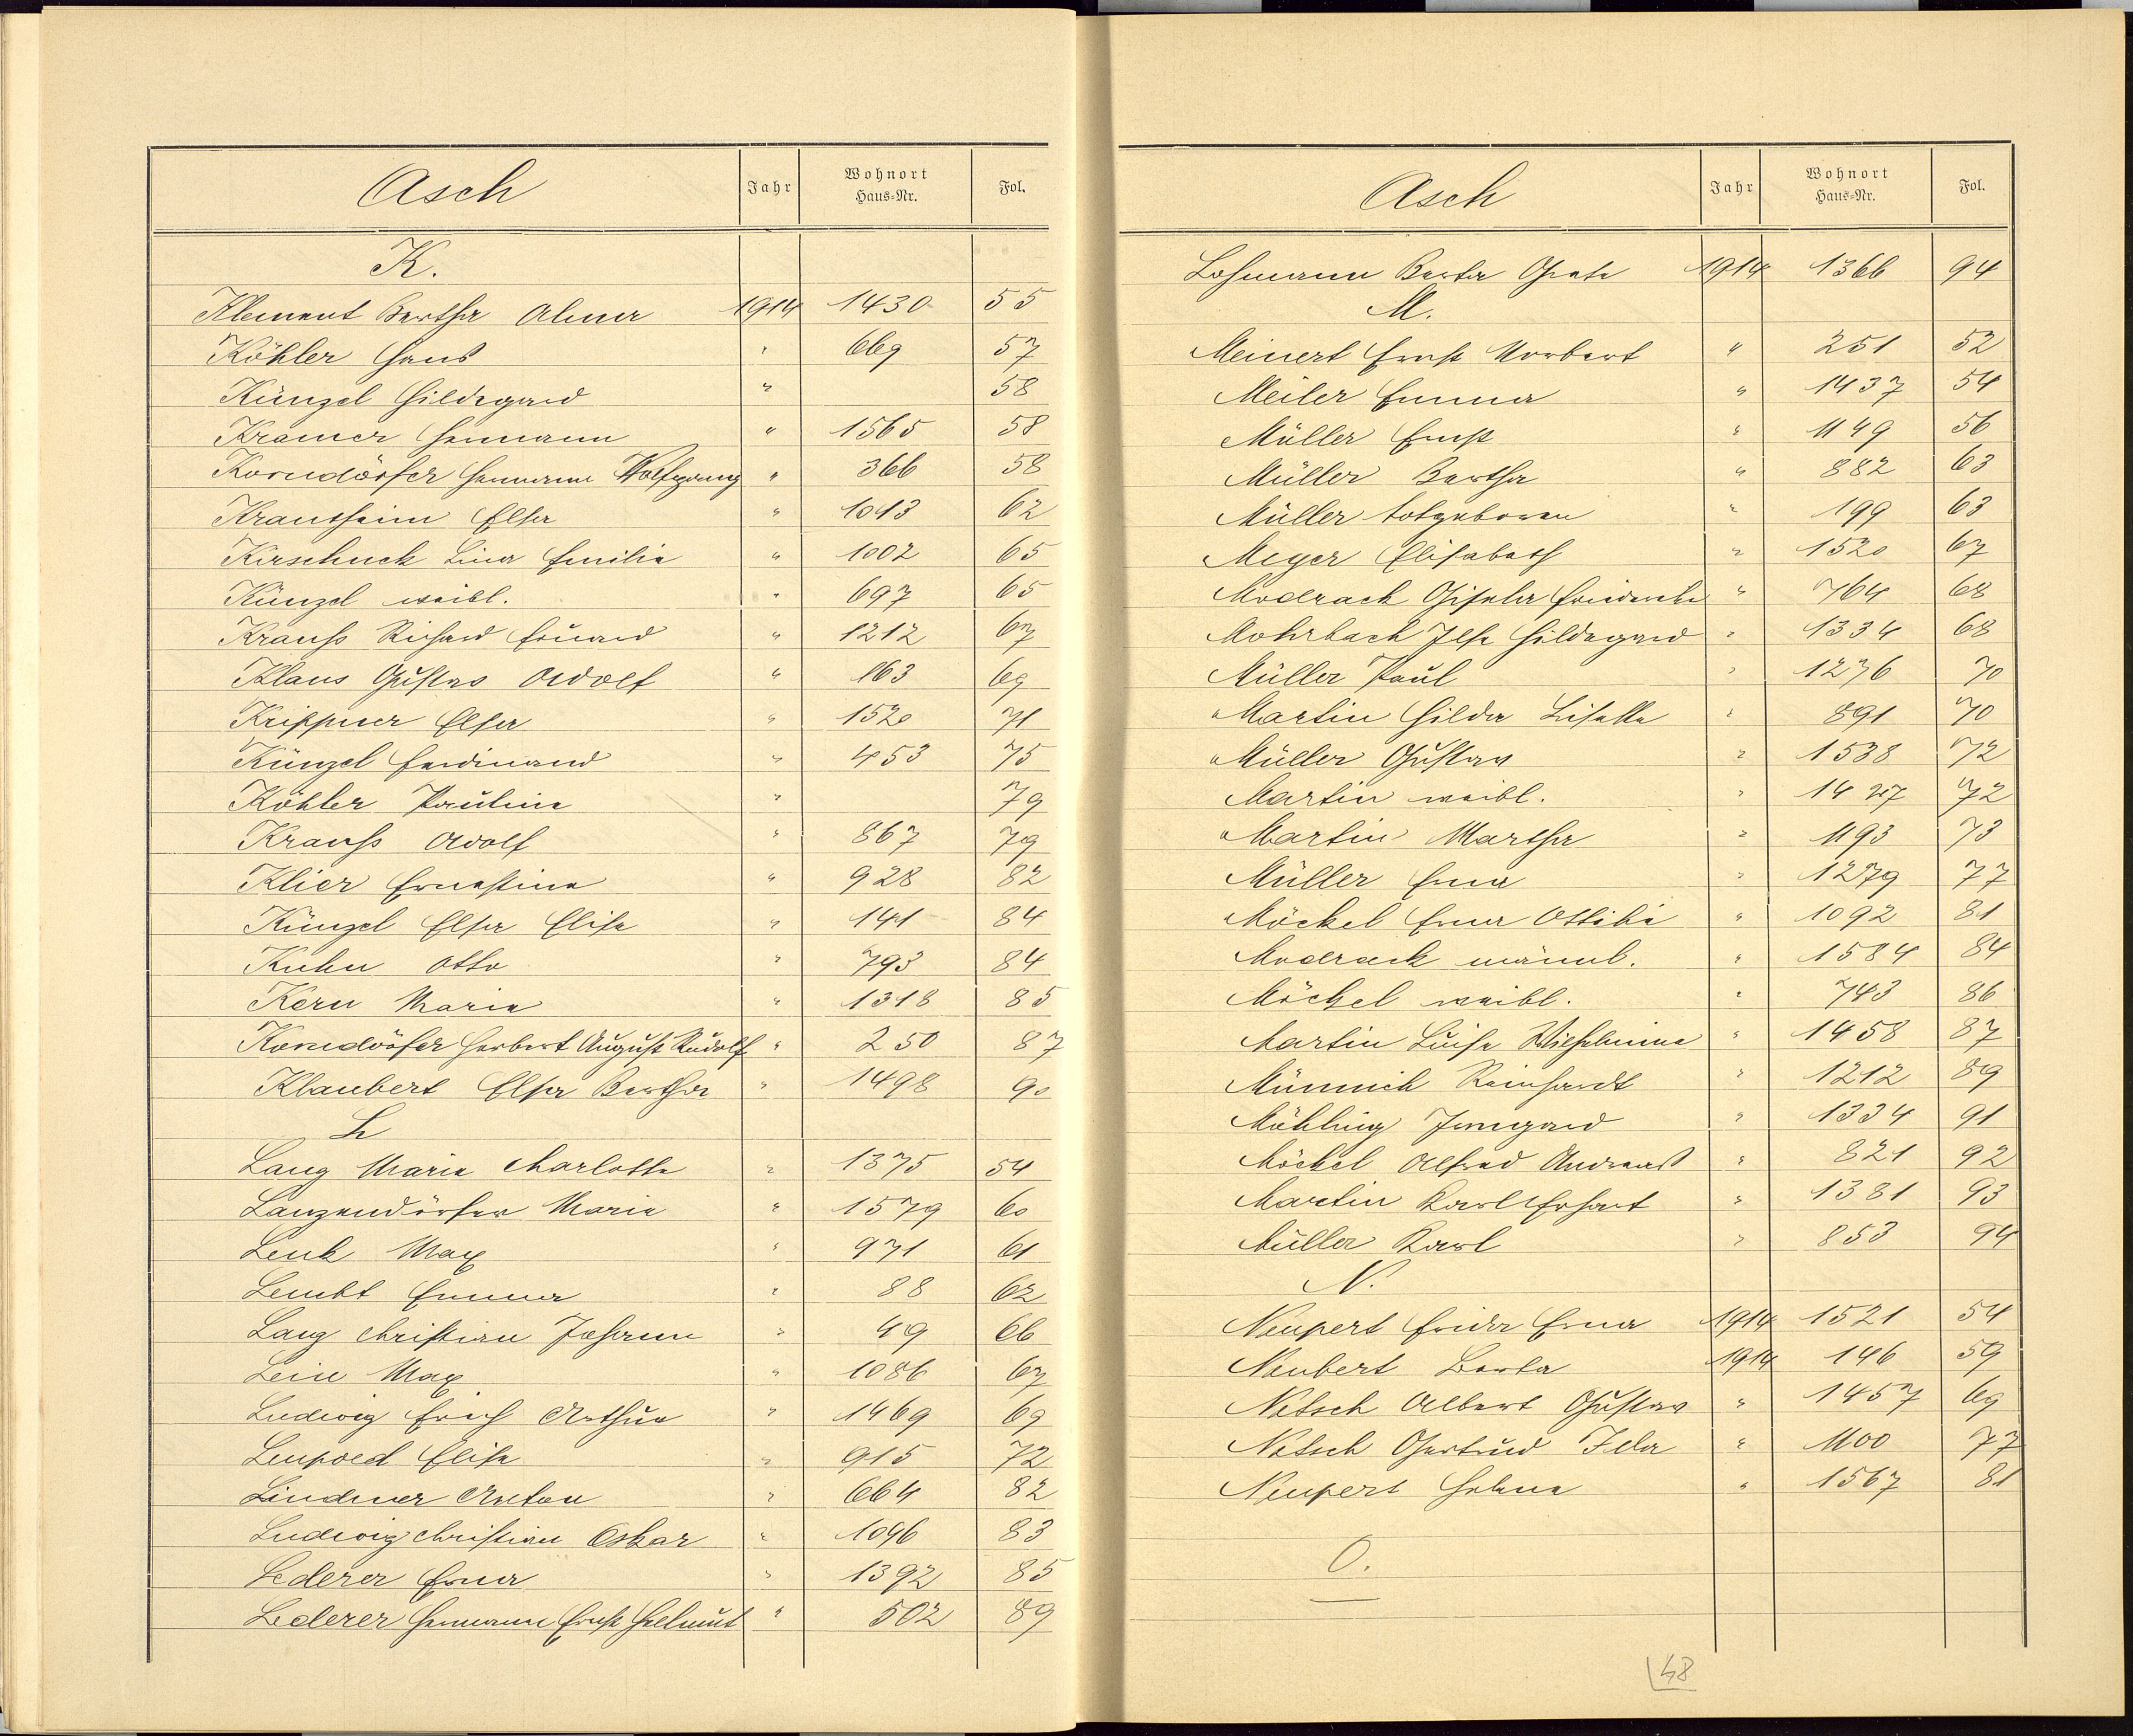 Asch Jahr Wohnort Haus-Nr. Fol.
K.
Klement Bertha Alma 1914 1430 55
Köhler Hans " 669 57
Künzel Hildegard " 58
Kramer Hermann " 1565 58
Korndörfer Hermann Wolfgang " 366 58
Krautheim Elsa " 1043 62
Kirschnek Lina Emilie " 1002 65
Künzel weibl. " 697 65
Krauß Richard Eduard " 1212 67
Klaus Gustav Adolf " 863 69
Krippner Elsa " 1520 71
Künzel Ferdinand " 453 75
Köhler Pauline " 79
Krauß Adolf " 867 79
Klier Ernestine " 928 82
Künzel Elsa Elise " 141 84
Kuhn Otto " 793 84
Kern Marie " 1318 85
Korndörfer Herbert August Rudolf " 250 87
Klaubert Elsa Bertha " 1498 90
L
Lang Marie Charlotte " 1375 54
Lanzendörfer Marie " 1579 60
Lenk Max " 971 61
Lembt Emma " 88 62
Lang Christian Johann " 49 66
Leis Max " 1086 67
Ludwig Erich Arthur " 1469 69
Leupold Elise " 915 72
Lindner Anton " 664 82
Ludwig Christian Oskar " 1096 83
Lederer Erna " 1392 85
Lederer Hermann Ernst Helmut " 502 89
Asch Jahr Wohnort Haus-Nr. Fol.
Lohmann Berta Grete 1914 1366 94
M.
Meinert Ernst Norbert " 251 52
Meiler Emma " 1437 54
Müller Ernst " 1149 56
Müller Bertha " 882 63
Müller totgeboren " 199 63
Meyer Elisabeth " 1520 67
Modrack Gisela Friederike " 764 68
Mohrbach Ilse Hildegard " 1334 68
Müller Paul " 1276 70
Martin Hilda Lisette " 891 70
Müller Gustav " 1538 72
Martin weibl. " 1427 72
Martin Martha " 1193 73
Müller Erna " 1279 77
Möckel Erna Ottilie " 1092 81
Modrack männl. " 1584 84
Möckel weibl. " 743 86
Martin Luise Wilhelmine " 1458 87
Münnich Reinhardt " 1212 89
Möhling Irmgard " 1334 91
Möckel Alfred Andreas " 821 92
Martin Karl Erhart " 1381 93
Müller Karl " 853 94
N.
Neupert Frieda Erna 1914 1521 54
Neubert Berta 1914 146 59
Netsch Albert Gustav " 1457 69
Netsch Gertrud Ida " 1100 77
Neupert Helene " 1567 81
O.
—
48